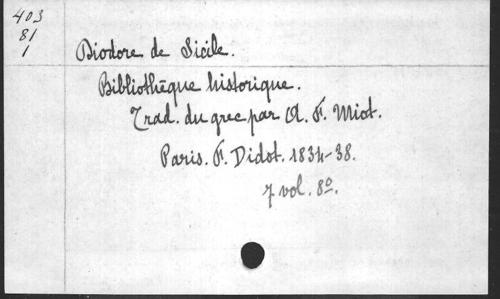 403
81
1
Diodore de Sicile.
Bibliothèque historique.
Trad. du grec par A. F. Miot.
Paris. F. Didot. 1834-38.
7 vol. 8º.